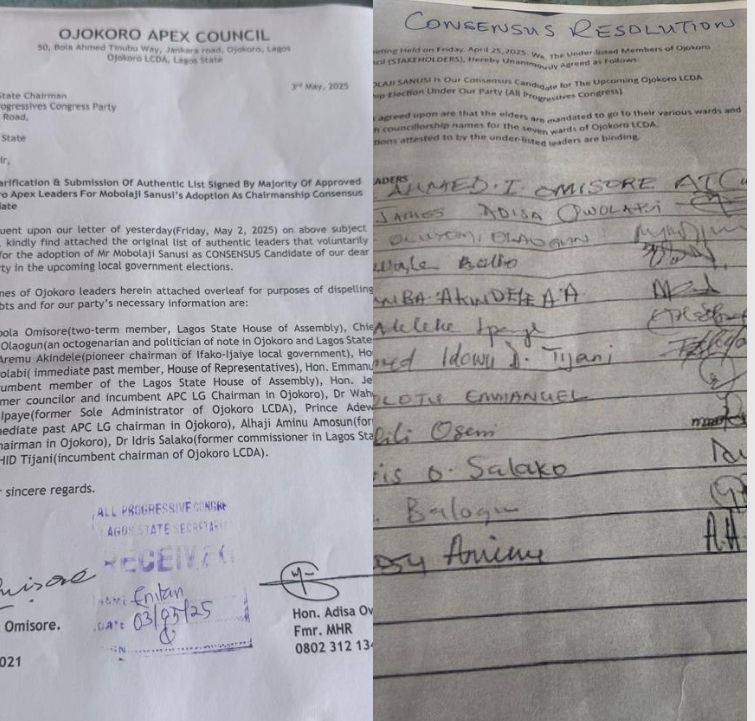 OJOKORO APEX COUNCIL
50, Bola Ahmed Tinubu Way, Jankara road, Ojokoro, Lagos
Ojokoro LCDA, Lagos State
3rd May, 2025
State Chairman
ogressives Congress Party
Road,
State
ir,
arification & Submission Of Authentic List Signed By Majority Of Approved
o Apex Leaders For Mobolaji Sanusi's Adoption As Chairmanship Consensus
ate
uent upon our letter of yesterday(Friday, May 2, 2025) on above subject
, kindly find attached the original list of authentic leaders that voluntarily
for the adoption of Mr Mobolaji Sanusi as CONSENSUS Candidate of our dear
ty in the upcoming local government elections.
mes of Ojokoro leaders herein attached overleaf for purposes of dispelling
bts and for our party's necessary information are:
ola Omisore(two-term member, Lagos State House of Assembly), Chie
Olaogun(an octogenarian and politician of note in Ojokoro and Lagos State
Aremu Akindele(pioneer chairman of Ifako-Ijaiye local government), Ho
olabi( immediate past member, House of Representatives), Hon. Emmanu
umbent member of the Lagos State House of Assembly), Hon. Je
mer councilor and incumbent APC LG Chairman in Ojokoro), Dr Wah
Ipaye(former Sole Administrator of Ojokoro LCDA), Prince Adew
mediate past APC LG chairman in Ojokoro), Alhaji Aminu Amosun(for
hairman in Ojokoro), Dr Idris Salako(former commissioner in Lagos Sta
HID Tijani(incumbent chairman of Ojokoro LCDA).
r sincere regards.
ALL PROGRESSIVE CONGRE
LAGOS STATE SECRETARI
RECEIVE
Enitan
DATE 03/05/25
SGN
Omisore
Omisore.
021
Hon. Adisa Ow
Fmr. MHR
0802 312 134
CONSENSUS RESOLUTION
eting Held on Friday, April 25, 2025, We, The Under-listed Members of Ojokoro
cil (STAKEHOLDERS), Hereby Unanimously Agreed as Follows:
OLAJI SANUSI Is Our Consensus Candidate for The Upcoming Ojokoro LCDA
ip Election Under Our Party (All Progressives Congress)
agreed upon are that the elders are mandated to go to their various wards and
h councillorship names for the seven wards of Ojokoro LCDA.
tions attested to by the under-listed leaders are binding.
ADERS
AHMED. I. OMISORE
JAMES ADISA OWOLABI
OLAOGUN
Balbo
MBA AKINDELE A'A
Adeleke Ipaye
med Idowu D. Tijani
OLOTU EMMANUEL
Oseni
is O. Salako
Balogu
Aminu
A.A